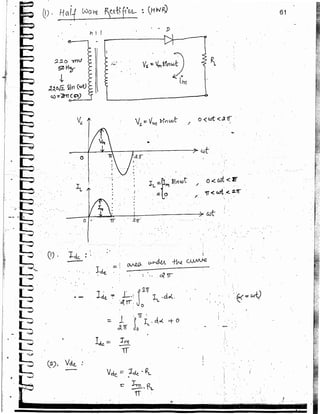 61
(1). Half Wave Rectifier : (HWR)
n : 1
D
220 rms
50 Hz
↓
220√2 sin (ωt)
ω = 2π(50)
Vs = Vm sinωt
Im
RL
Vs
Vs = Vm sinωt , 0 < ωt < 2π
Vm
0 π 2π ωt
IL
IL = { Im sinωt , 0 < ωt < π
0 , π < ωt < 2π
Im
0 π 2π ωt
(1). Idc :
Idc = area under the curve
2π
Idc = 1/2π ∫₀^2π IL . dα (α = ωt)
= 1/2π ∫₀^π IL . dα + 0
Idc = Im/π
(2). Vdc :
Vdc = Idc . RL
= Im/π . RL